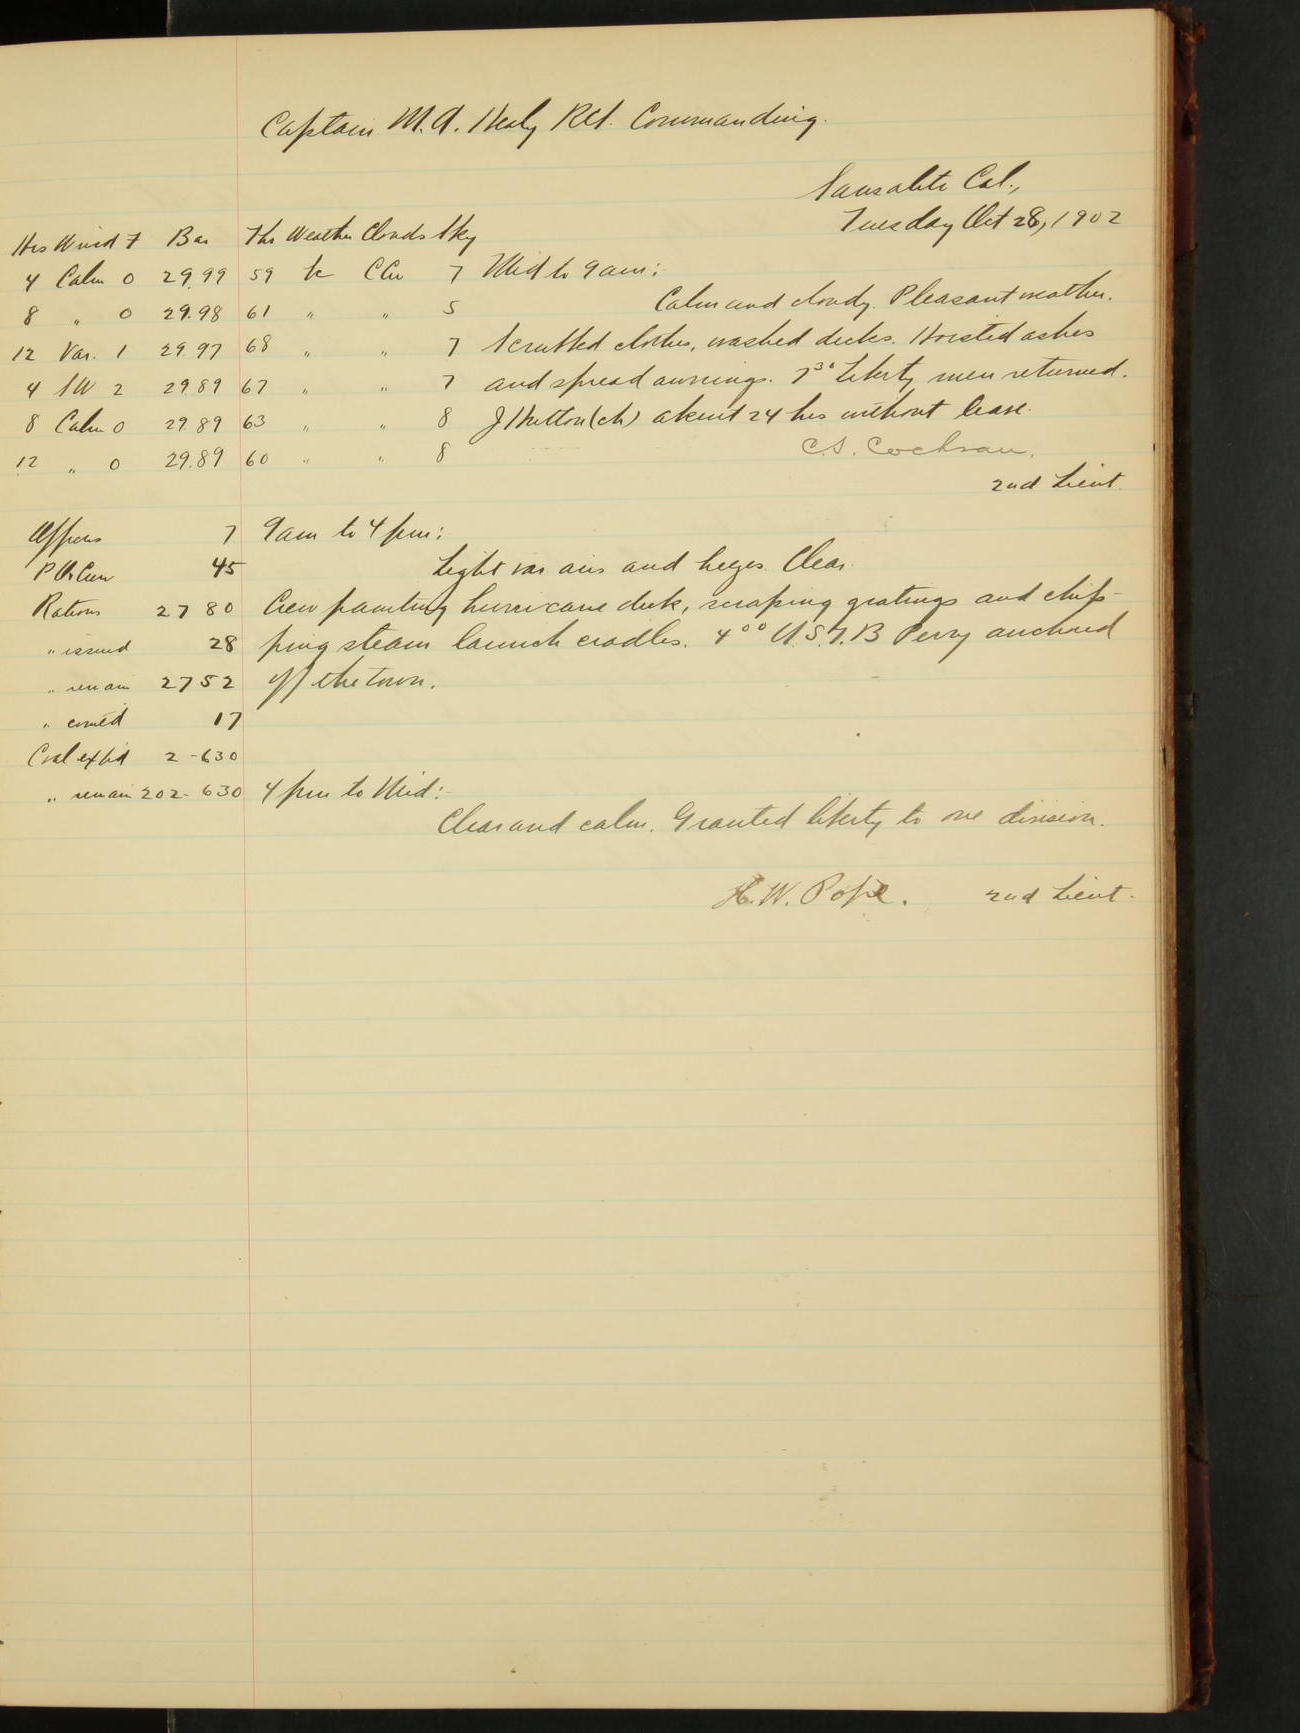 Captain M.A. Healy RCS. Commanding.
Sausalito Cal.,
Tuesday Oct 28, 1902
Hrs Wind F Bar Thr Weather Clouds Sky
4 Calm 0 29.99 59 bc 7 Mid to 9 am:
8 " 0 29.98 61 " " 5 Calm and cloudy. Pleasant weather.
12 Var. 1 29.97 68 " " 7 Scrubbed clothes, washed decks. Hoisted ashes
4 SW 2 29.89 67 " " 7 and spread awnings. 7³⁰ Liberty men returned.
8 Calm 0 29.89 63 " " 8 J Hutton (ch) absent 24 hrs without leave.
12 " 0 29.89 60 " " 8 C.S. Cochran.
2nd Lieut.
Officers 7 9am to 4 pm:
P.O. & Crew 45 Light var airs and hazy. Clear.
Rations 2780 Crew painting hurricane deck, scraping gratings and chip-
" issued 28 ping steam launch cradles. 4⁰⁰ U.S.T.B Perry anchored
" remain 2752 off the town.
" com'ed 17
Coal exp'd 2-630
" remain 202-630 4 pm to Mid:-
Clear and calm. Granted liberty to one division.
H.W. Pope. 2nd Lieut.